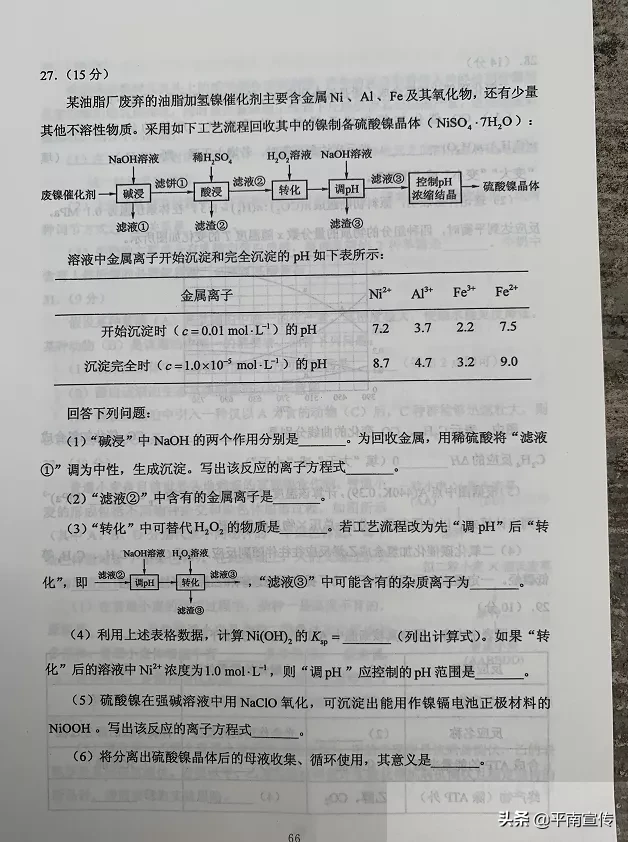 27.（15 分）
某油脂厂废弃的油脂加氢镍催化剂主要含金属 Ni 、Al 、Fe 及其氧化物，还有少量
其他不溶性物质。采用如下工艺流程回收其中的镍制备硫酸镍晶体（NiSO₄·7H₂O）：
NaOH溶液 稀H₂SO₄ H₂O₂溶液 NaOH溶液
废镍催化剂 碱浸 滤饼① 酸浸 滤液② 转化 调pH 滤液③ 控制pH 浓缩结晶 硫酸镍晶体
滤液① 滤渣② 滤渣③
溶液中金属离子开始沉淀和完全沉淀的 pH 如下表所示：
金属离子 Ni²⁺ Al³⁺ Fe³⁺ Fe²⁺
开始沉淀时（c＝0.01 mol·L⁻¹）的 pH 7.2 3.7 2.2 7.5
沉淀完全时（c＝1.0×10⁻⁵ mol·L⁻¹）的 pH 8.7 4.7 3.2 9.0
回答下列问题：
（1）“碱浸”中 NaOH 的两个作用分别是______。为回收金属，用稀硫酸将“滤液
①”调为中性，生成沉淀。写出该反应的离子方程式______。
（2）“滤液②”中含有的金属离子是______。
（3）“转化”中可替代 H₂O₂ 的物质是______。若工艺流程改为先“调 pH”后“转
NaOH溶液 H₂O₂溶液
化”，即 滤液② 调pH 转化 滤液③ ，“滤液③”中可能含有的杂质离子为______。
滤渣③
（4）利用上述表格数据，计算 Ni(OH)₂ 的 Kₛₚ＝______（列出计算式）。如果“转
化”后的溶液中 Ni²⁺ 浓度为 1.0 mol·L⁻¹，则“调 pH ”应控制的 pH 范围是______。
（5）硫酸镍在强碱溶液中用 NaClO 氧化，可沉淀出能用作镍镉电池正极材料的
NiOOH 。写出该反应的离子方程式______。
（6）将分离出硫酸镍晶体后的母液收集、循环使用，其意义是______。
66
头条 @平南宣传